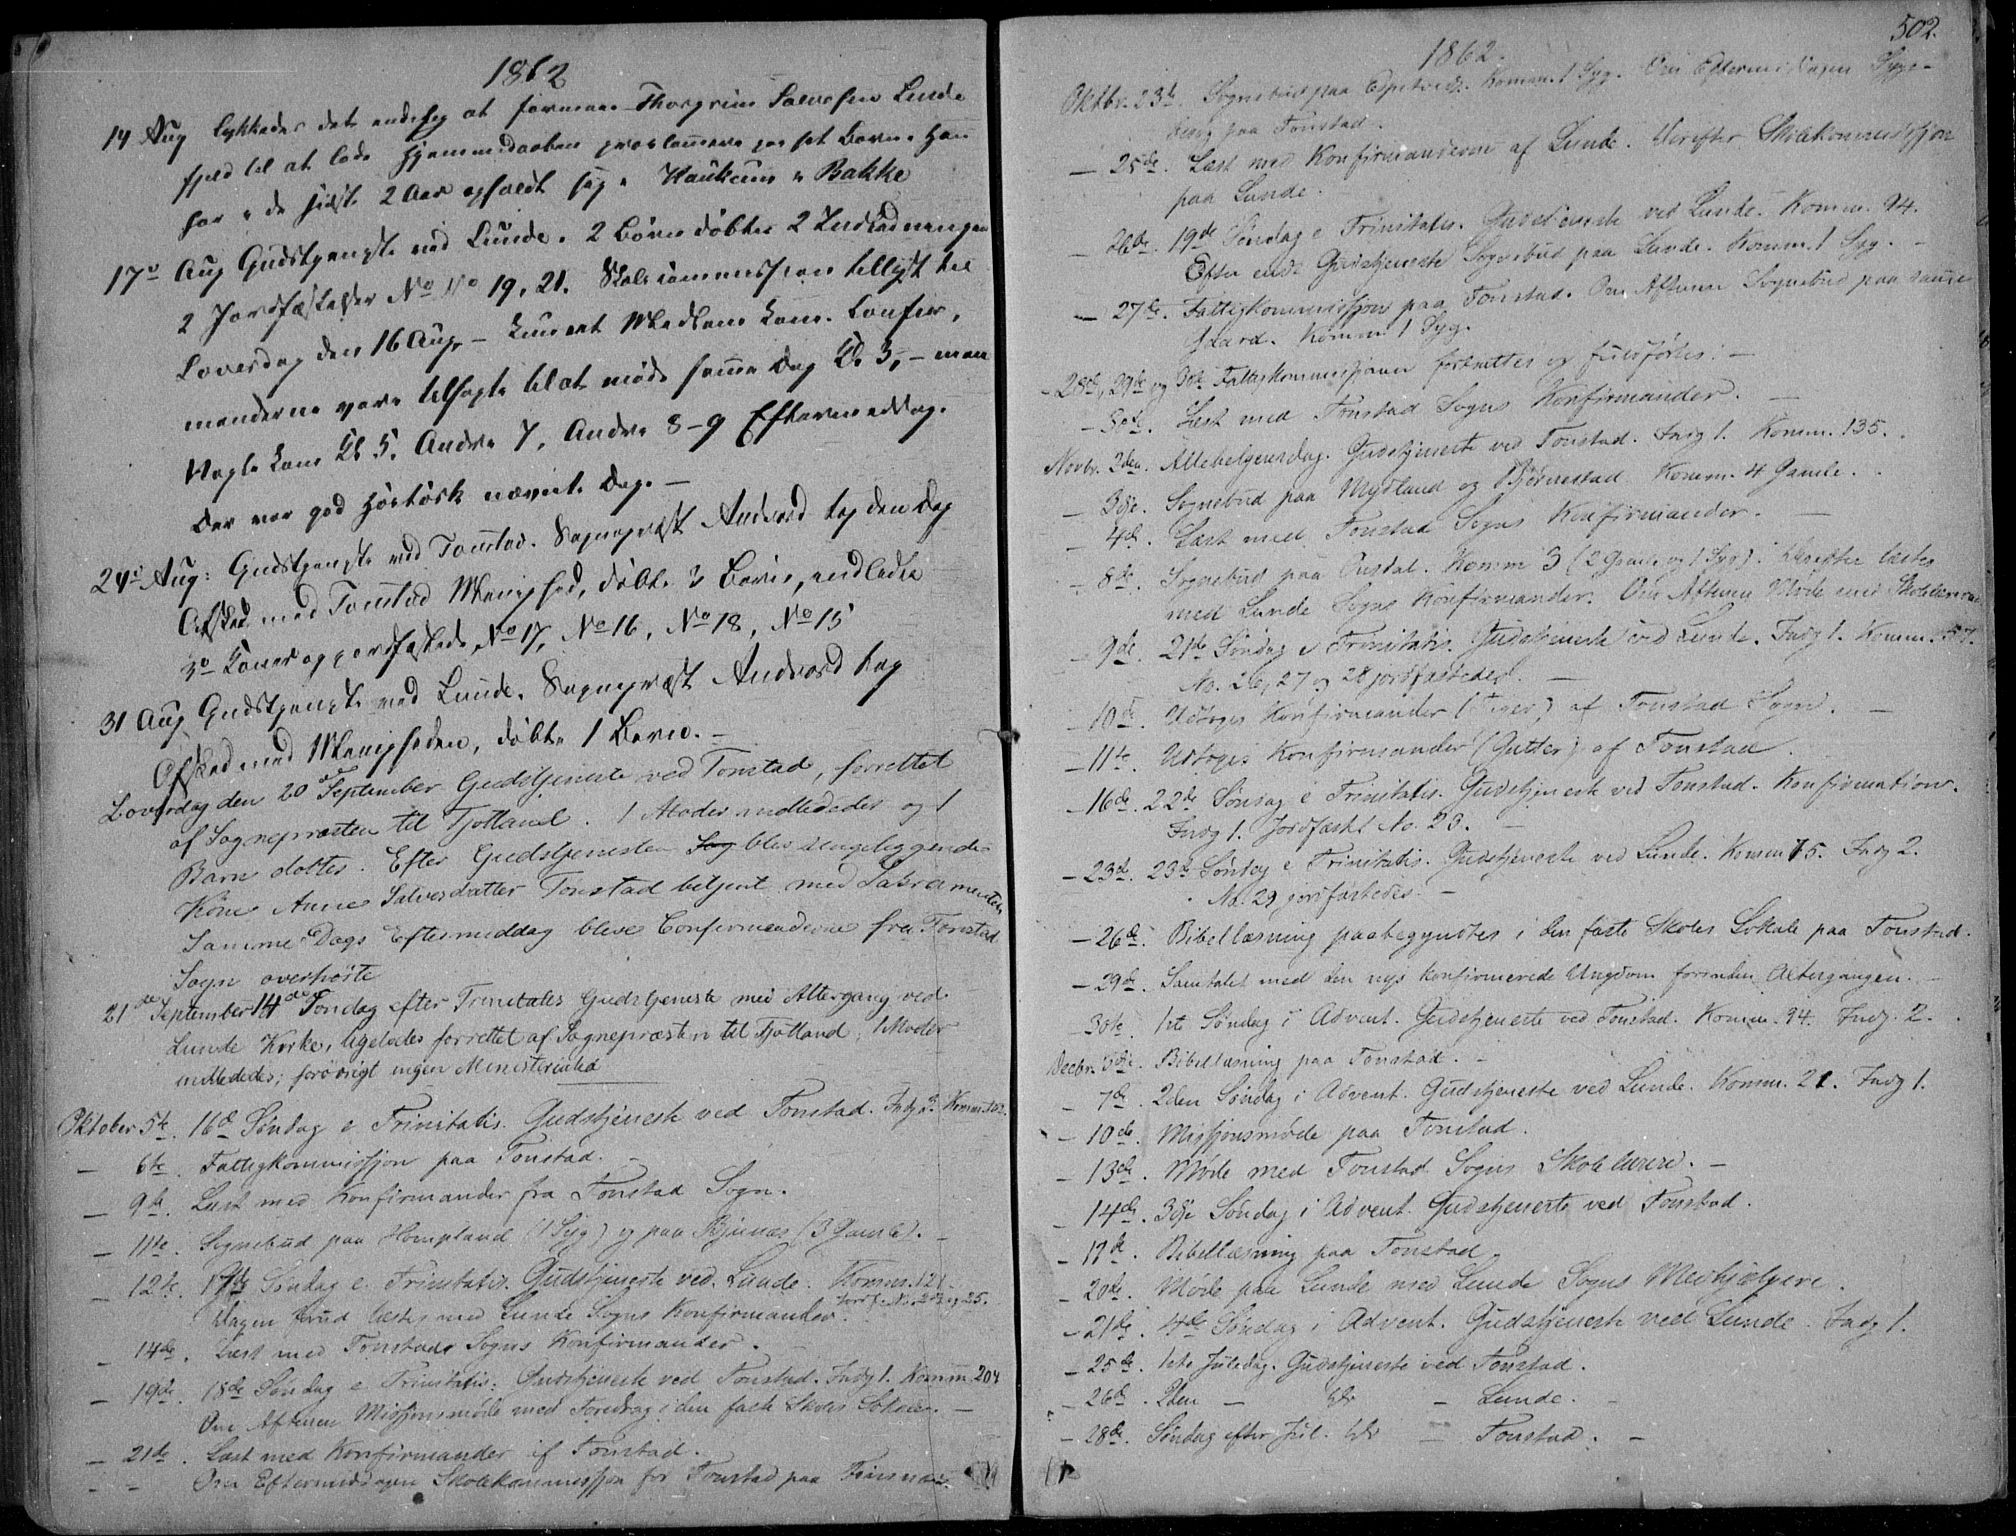 1862
14 Aug lykkedes det endelig at formaae Thorgrim Salvesen Lunde
fjeld til at lade Hjemmedaaben proclamere paa sit Barn. Han
har i de sidste 2 Aar opholdt sig i Haukum i Bakke
17de Aug Gudstjeneste ved Lunde. 2 Børn døbtes 2 Indledninger
2 Jordfæstelser No No 19, 21. Skolecommission tillyst til
Loverdag den 16 Aug. – Lunert Medlem kom. Confir,
manderne vare tilsagte til at møde samme Dag Kl. 3, – men
Nogle kom Kl 5. Andre 7, Andre 8–9 Eftermiddag.
Der var god Høitørk nævnte Dag. –
24de Aug: Gudstjeneste ved Tonstad. Sognepræst Andvord tog den Dag
Afsked med Tonstad Menighed, døbte 3 Børn, indledte
3de Koner og jordfæstede No 17, No 16, No 18, No 15
31 Aug Gudstjeneste ved Lunde. Sognepræst Andvord tog
Afsked med Menigheden, døbte 1 Barn. –
Loverdag den 20de September Gudstjeneste ved Tonstad, forrettet
af Sognepræsten til Fjotland. 1 Moder indlededes og 1
Barn døbtes. Efter Gudstjenesten Sog blev sengeliggende
Kone Anne Salvesdatter Tonstad betjent med Sakramentet
Samme Dags Eftermiddag bleve Confirmanderne fra Tonstad
Sogn overhørte
21de September 14de Søndag efter Trinitatis Gudstjeneste med Altergang ved
Lunde Kirke, ligeledes forrettet af Sognepræsten til Fjotland, 1 Moder
indlededes; forøvrigt ingen Ministerialia
Oktober 5te. 16de Søndag e Trinitatis. Gudstjeneste ved Tonstad. Indg 2. Komm. 102.
– 6te. Fattigkommissjon paa Tonstad. –
– 9de. Læst med Konfirmander fra Tonstad Sogn.
– 11te. Sognebud paa Hompland (1 Syg) og paa Bjunes (3 Gamle). –
– 12te. 17de Søndag e. Trinitatis. Gudstjeneste ved Lunde. Komm. 121.
Jordf. No. 24 og 25.
Dagen forud læstes med Lunde Sogns Konfirmander.
– 14de. Læst med Tonstads Sogns Konfirmander.
– 19de. 18de Søndag e Trinitatis. Gudstjeneste ved Tonstad. Indg 1. Komm 204
Om Aftenen Missjonsmøde med Foredrag i den faste Skoles Lokale. –
– 21de. Læst med Konfirmander af Tonstad.
– – Om Eftermiddagen Skolekommissjon for Tonstad paa Finsnæs.
502.
1862.
Oktbr. 23de. Sognebud paa Espetveit. Komm. 1 Syg. Om Eftermiddagen Syge-
besøg paa Tonstad.
– 25de. Læst med Konfirmanderne af Lunde. Derefter Skolekommissjon
paa Lunde.
– 26de. 19de Søndag e Trinitatis. Gudstjeneste ved Lunde. Komm. 94.
Efter endt Gudstjeneste Sognebud paa Lunde. Komm. 1 Syg. –
– 27de. Fattigkommissjon paa Tonstad. Om Aftenen Sognebud paa samme
Gaard. Komm. 1 Syg.
– 28de, 29de og 30te Fattigkommissjonen fortsattes og fuldførtes. –
– 30te. Læst med Tonstad Sogns Konfirmander. –
Novbr. 2den. Allehelgensdag. Gudstjeneste ved Tonstad. Indg 1. Komm. 135.
– 3die. Sognebud paa Mydland og Bjørnestad Komm. 4 Gamle.
– 4de. Læst med Tonstad Sogns Konfirmander. –
– 8de. Sognebud paa Ousdal. Komm 3 (2 Gamle og 1 Syg). Derefter læstes
med Lunde Sogns Konfirmander. Om Aftenen Møde med Skolelærerne
– 9de. 21de Søndag e Trinitatis. Gudstjeneste ved Lunde. Indg 1. Komm. 57.
No. 26, 27 og 28 jordfæstedes. –
– 10de. Udtoges Konfirmander (Piger) af Tonstad Sogn. –
– 11te. Udtoges Konfirmander (Gutter) af Tonstad.
– 16de. 22de Søndag e Trinitatis. Gudstjeneste ved Tonstad. Konfirmation.
Indg 1. Jordfæst No. 23. –
– 23de. 23de Søndag e Trinitatis. Gudstjeneste ved Lunde. Komm 15. Indg 2.
No. 29 jordfæstedes. –
– 26de. Bibellæsning paabegyndtes i den faste Skoles Lokale paa Tonstad.
– 29de. Samtalet med den nys konfirmerede Ungdom forinden Altergangen. –
– 30te. 1ste Søndag i Advent. Gudstjeneste ved Tonstad. Komm. 94. Indg. 2.
Decbr. 3die. Bibellæsning paa Tonstad. –
– 7de. 2den Søndag i Advent. Gudstjeneste ved Lunde. Komm. 21. Indg 1.
– 10de. Missjonsmøde paa Tonstad.
– 13de. Møde med Tonstad Sogns Skolelærere. –
– 14de. 3die Søndag i Advent. Gudstjeneste ved Tonstad.
– 17de. Bibellæsning paa Tonstad.
– 20de. Møde paa Lunde med Lunde Sogns Medhjælpere.
– 21de. 4de Søndag i Advent. Gudstjeneste ved Lunde. Indg 1.
– 25de. 1ste Juledag. Gudstjeneste ved Tonstad.
– 26de. 2den – do – Lunde. –
– 28de. Søndag efter Jul. do – Tonstad. –